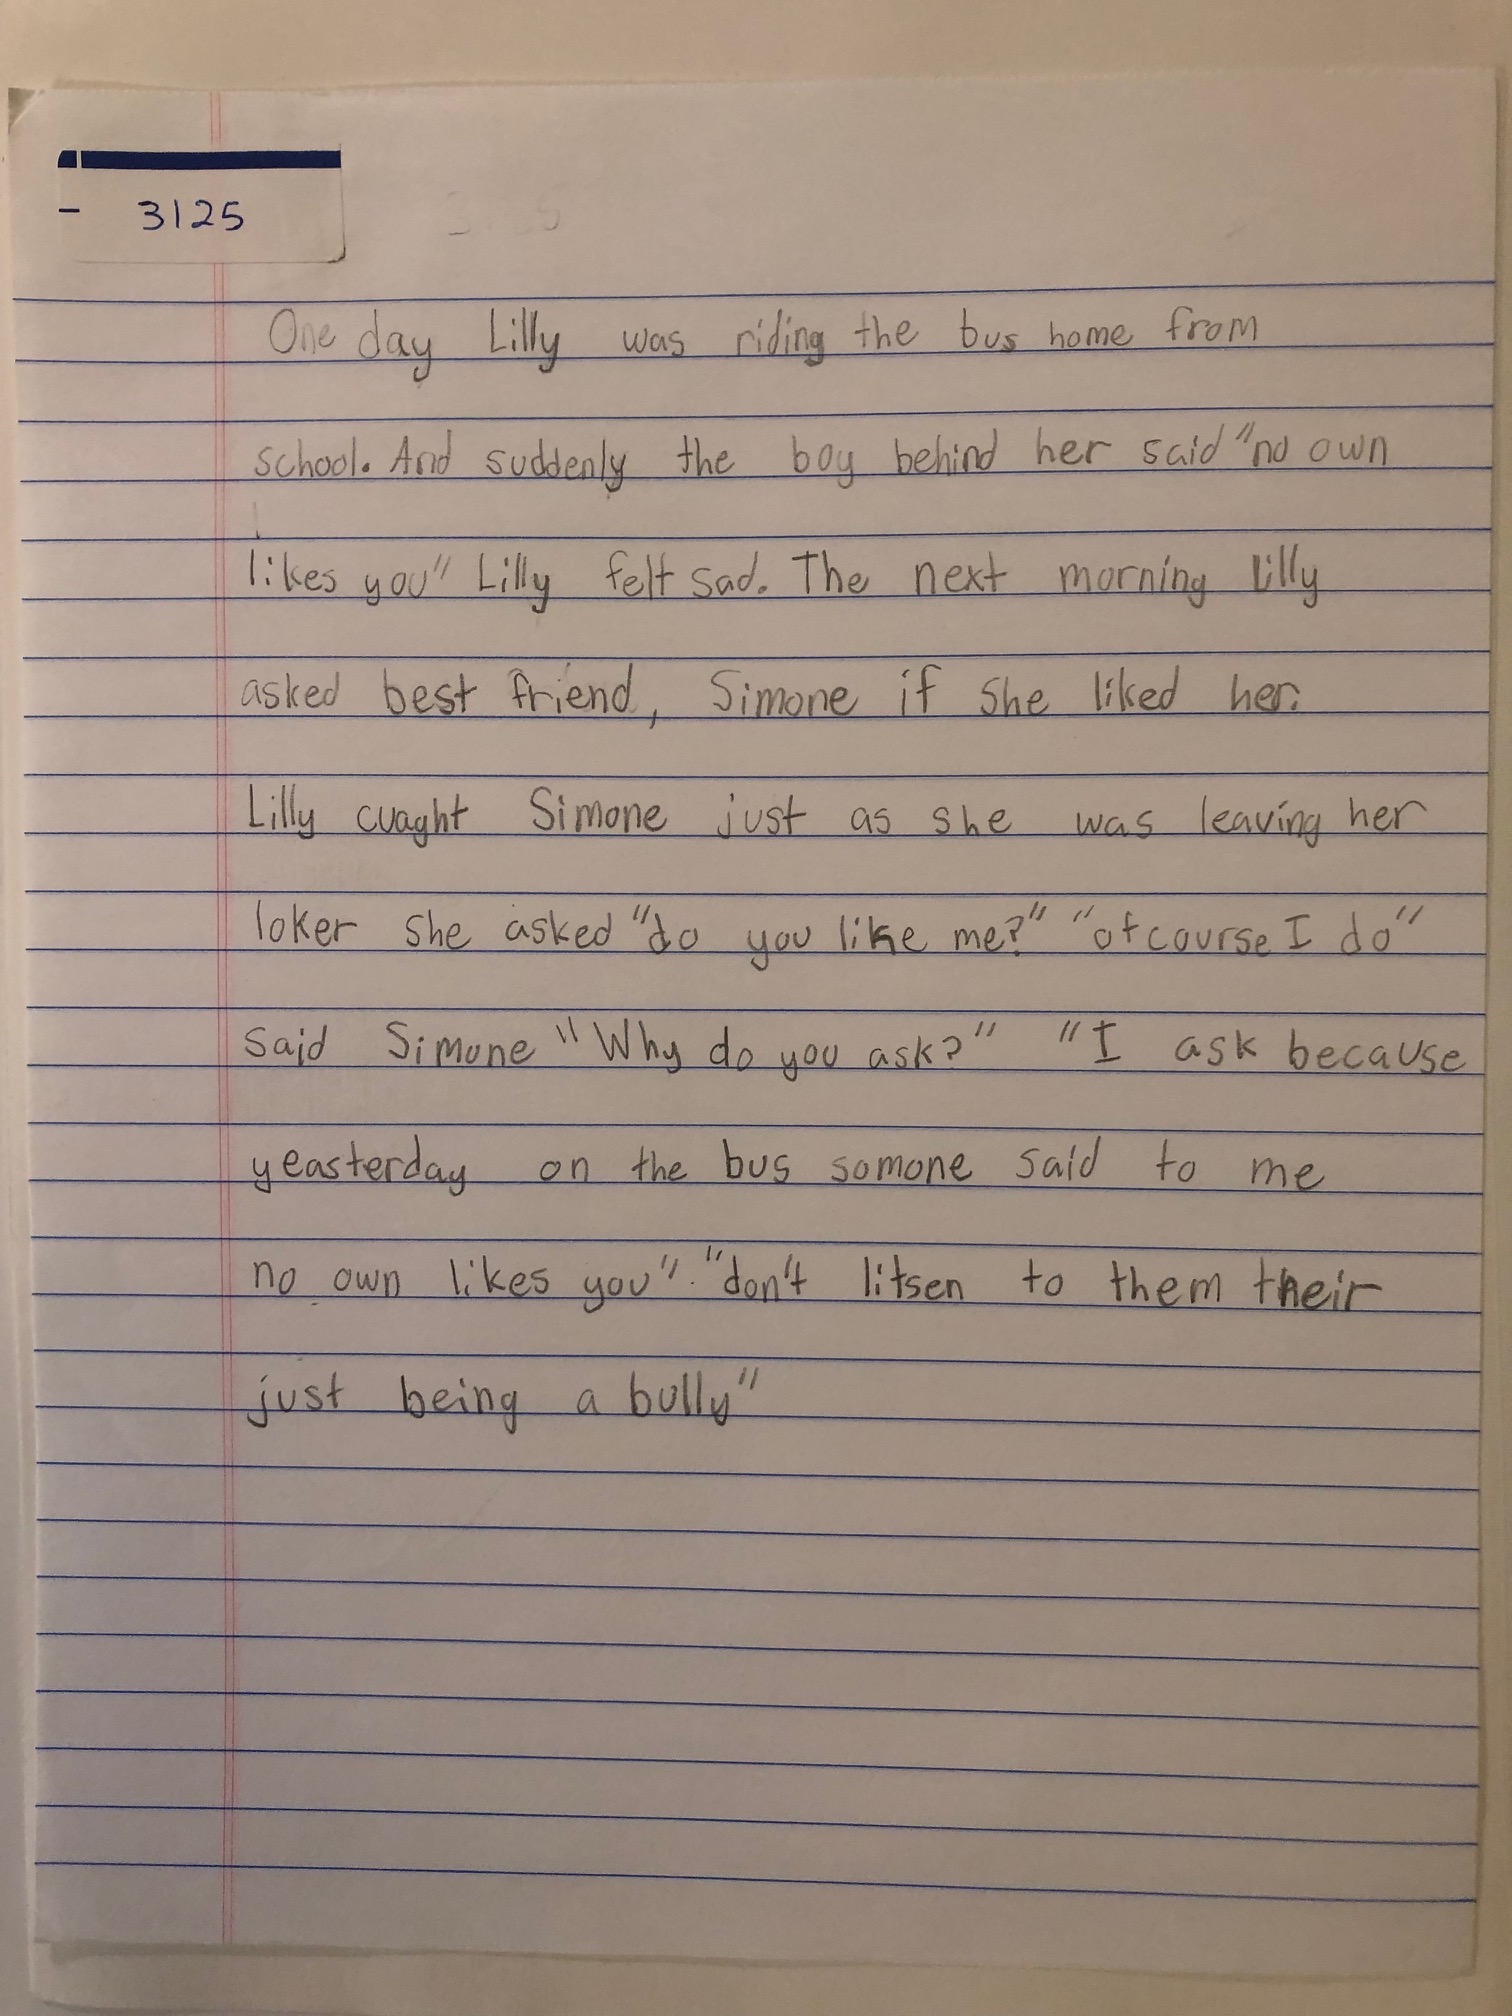 - 3125
One day Lilly was riding the bus home from
school. And suddenly the boy behind her said "no own
likes you" Lilly felt sad. The next morning Lilly
asked best friend, Simone if she liked her.
Lilly cuaght Simone just as she was leaving her
loker she asked "do you like me?" "of course I do"
said Simone "Why do you ask?" "I ask because
yeasterday on the bus somone said to me
no own likes you". "don't litsen to them their
just being a bully"